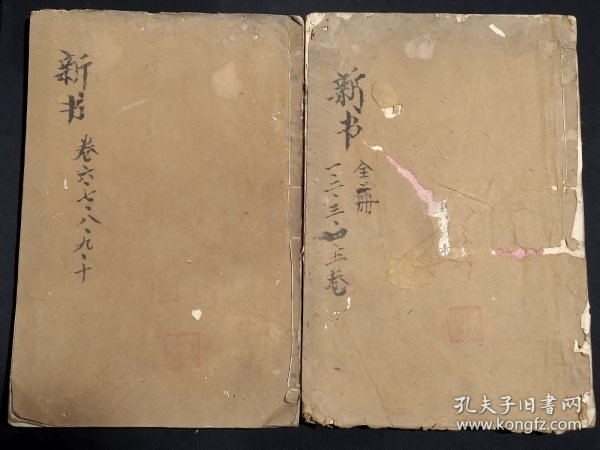 新书
卷六·七·八·九·十
新书
全二册
一·二·三·四·五卷
孔夫子旧書网
www.kongfz.com